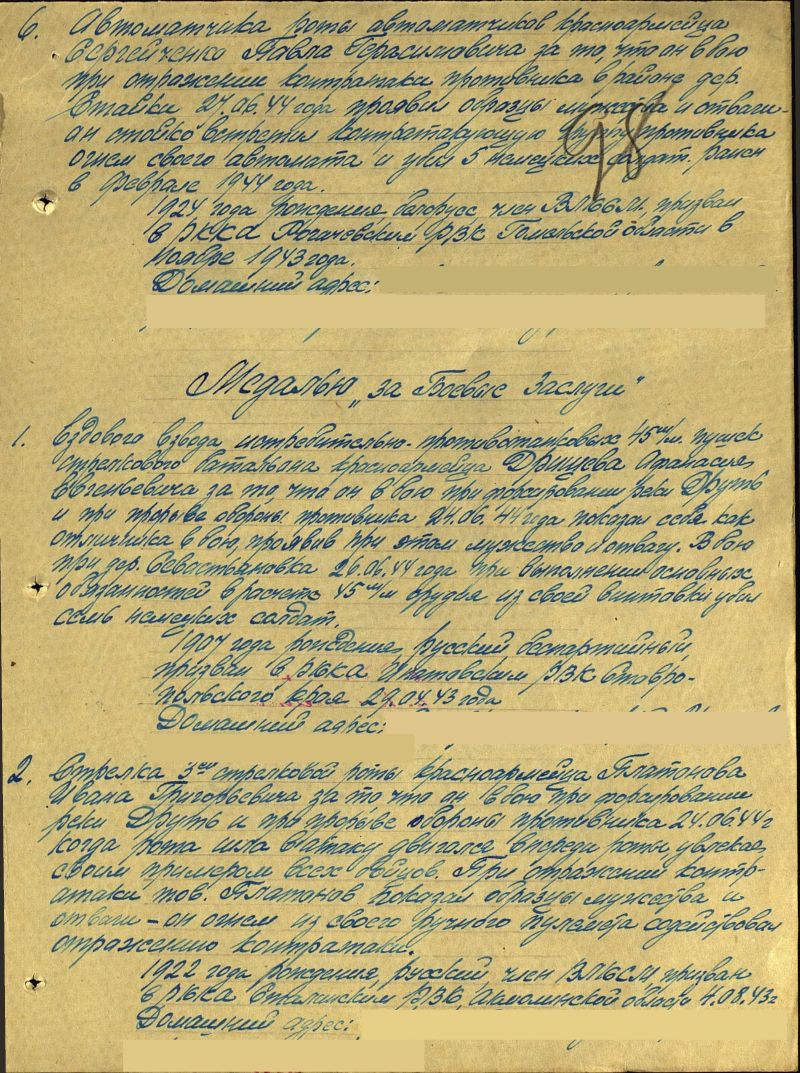 6. Автоматчика роты автоматчиков красноармейца
Сергейченко Павла Герасимовича за то, что он в бою
при отражении контратаки противника в районе дер.
Стайки 27.06.44 года проявил образцы мужества и отваги-
он стойко встретил контратакующую группу противника
огнем своего автомата и убил 5 немецких солдат. ранен
в феврале 1944 года.
98
1924 года рождения, белорус, член ВЛКСМ, призван
в РККА Рогачевским РВК Гомельской области в
ноябре 1943 года.
Домашний адрес:
Медалью „за Боевые Заслуги“
1. Ездового взвода истребительно-противотанковых 45 м/м. пушек
стрелкового батальона красноармейца Дрищева Афанасия
Евгеньевича за то, что он в бою при форсировании реки Друть
и при прорыве обороны противника 24.06.44 года показал себя как
отличника в бою, проявив при этом мужество и отвагу. В бою
при дер. Севостьяновка 26.06.44 года при выполнении основных
обязанностей в расчете 45 м/м орудия из своей винтовки убил
семь немецких солдат.
1907 года рождения, русский, беспартийный,
призван в РККА Ипатовским РВК Ставро-
польского края 29.04.43 года
Домашний адрес:
2. Стрелка 3ей стрелковой роты красноармейца Платонова
Ивана Григорьевича за то что он в бою при форсировании
реки Друть и при прорыве обороны противника 24.06.44 г
когда рота шла в атаку двигался впереди роты увлекая
своим примером всех бойцов. При отражении контр-
атаки тов. Платонов показал образцы мужества и
отваги - он огнем из своего ручного пулемета содействовал
отражению контратаки.
1922 года рождения, русский, член ВЛКСМ, призван
в РККА Сталинским РВК, Акмолинской области 4.08.43 г
Домашний адрес: